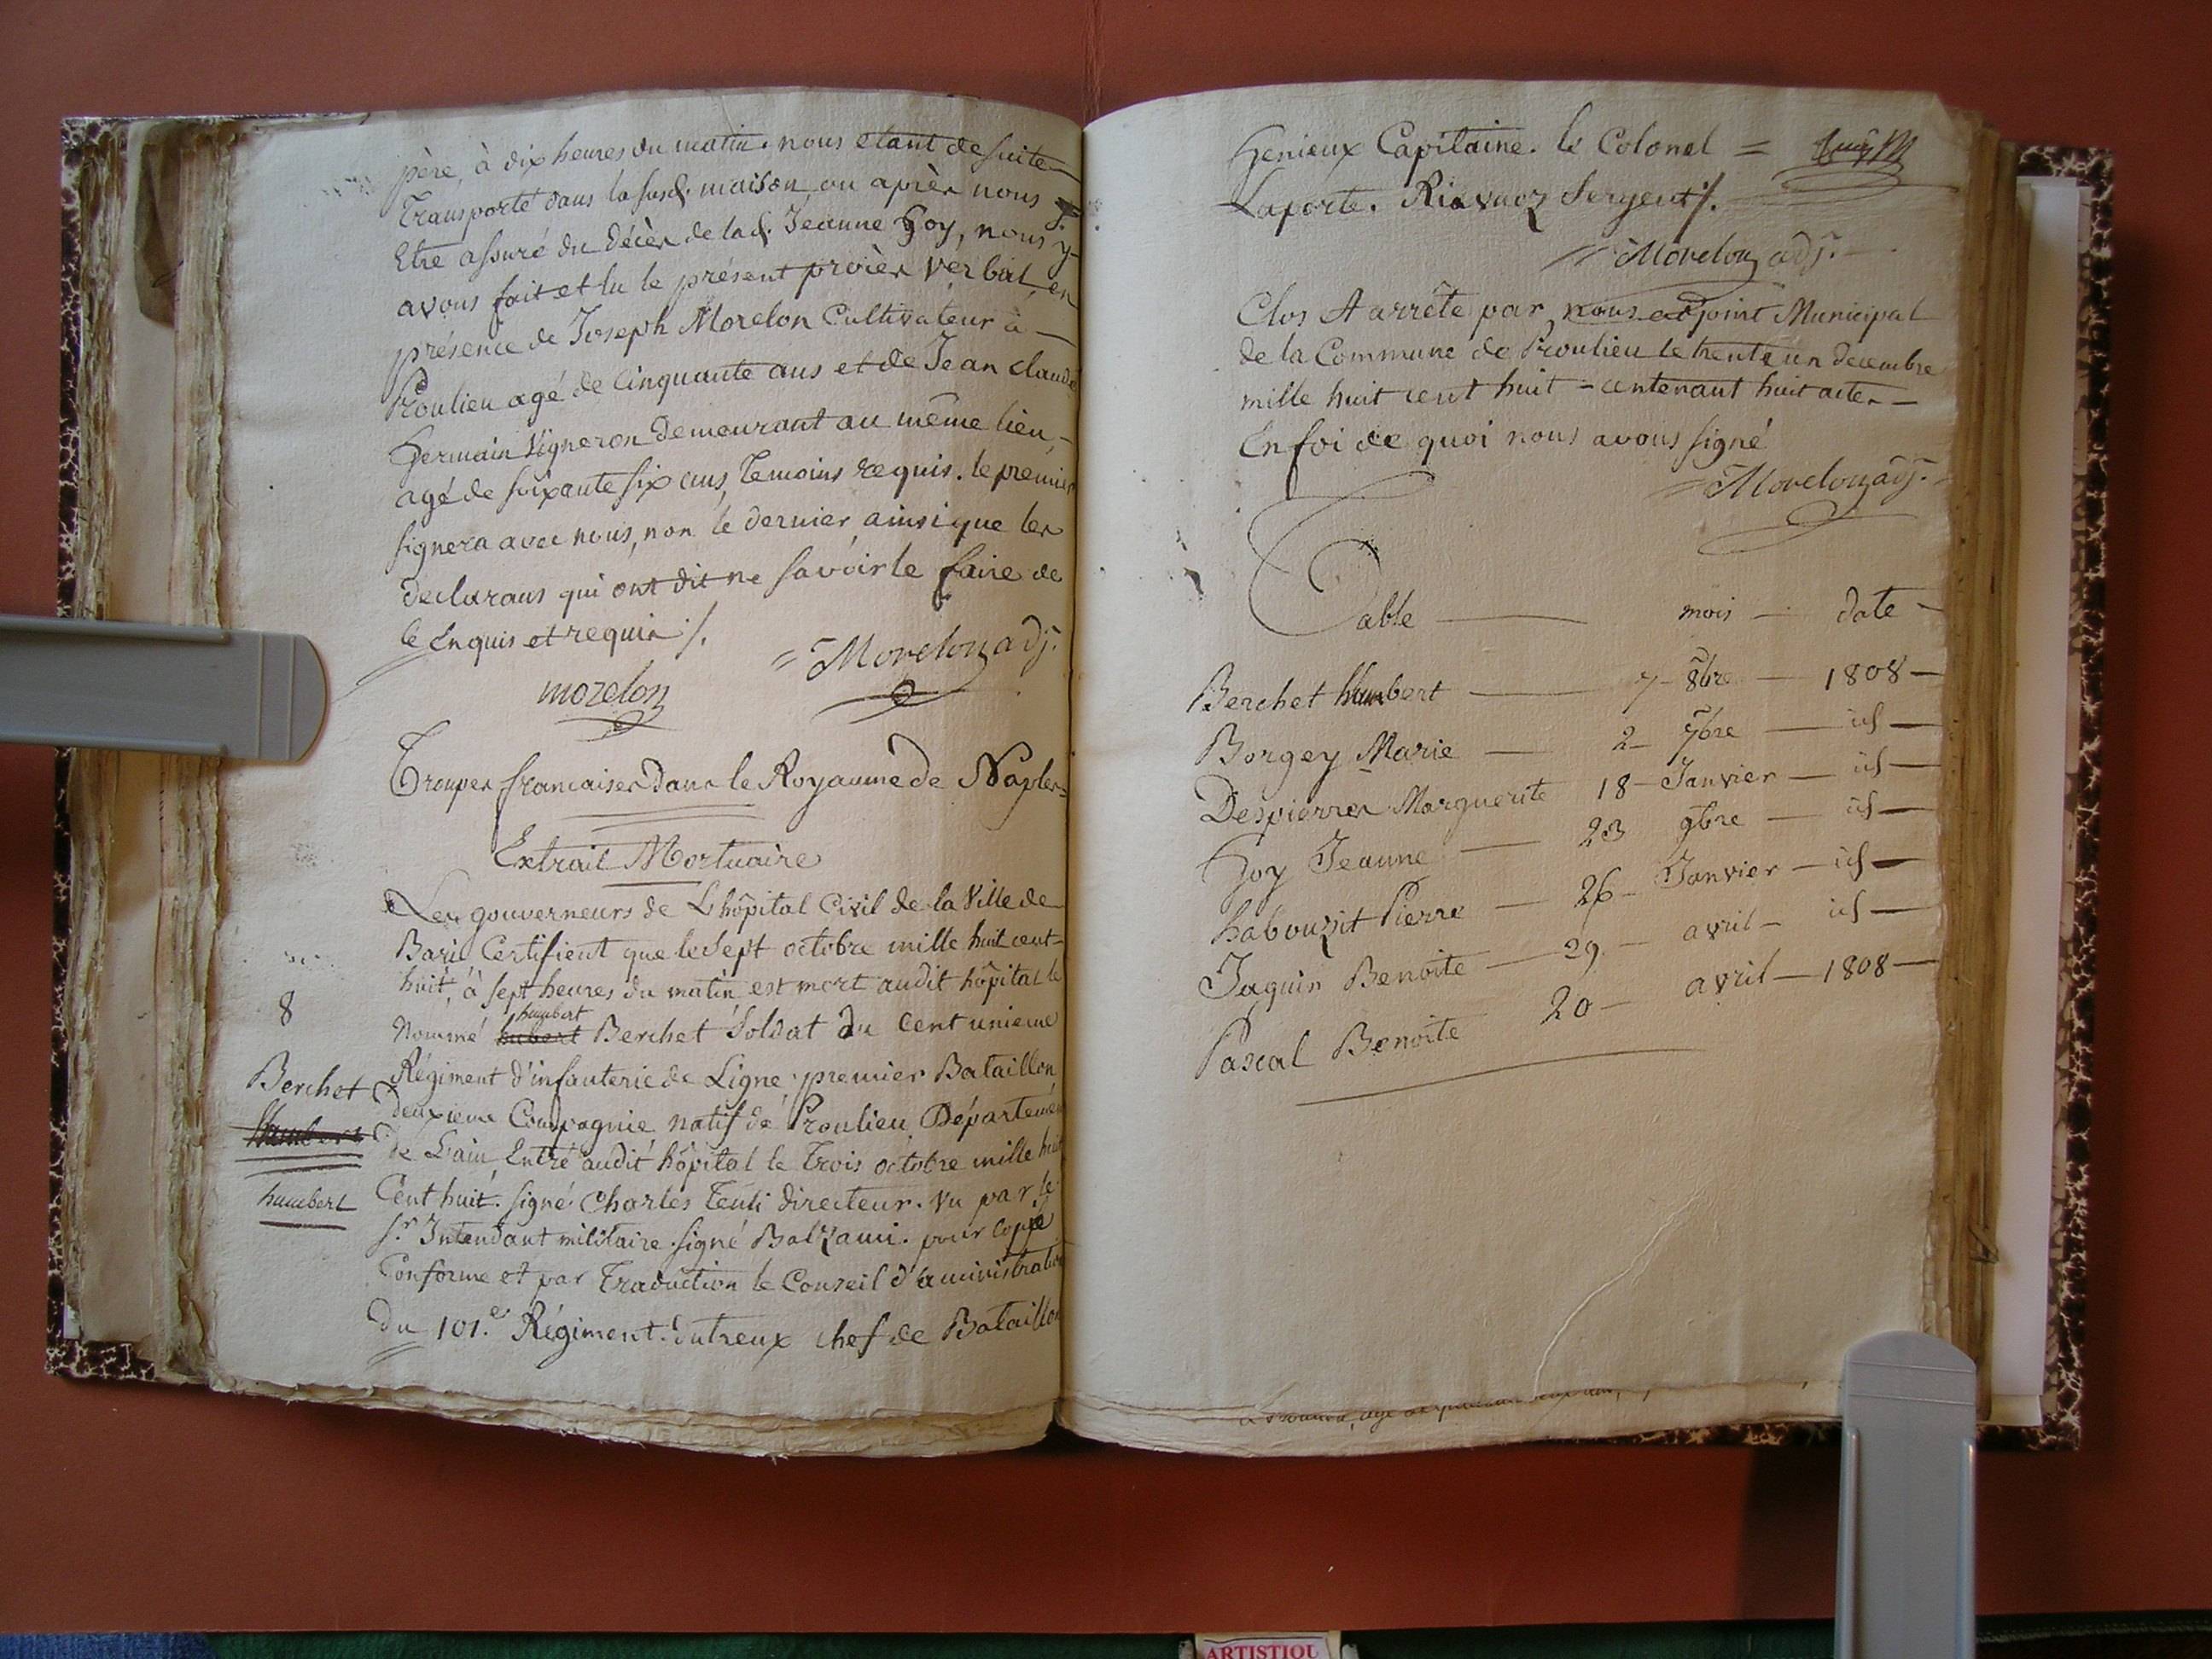 père, à dix heures du matin. nous etant de suite
Transporté dans la susd. maison ou après nous
Etre assuré du décès de lad. Jeanne Goy, nous y
avons fait et lu le présent procès verbal en
présence de Joseph Morelon Cultivateur à
Proulieu agé de Cinquante ans et de Jean claude
Germain Vigneron demeurant au même lieu
agé de soixante six ans, Temoins requis. le premier
signera avec nous, non le dernier, ainsi que les
declarans qui ont dit ne savoir le faire de
ce Enquis et requis ./.
morelon
= Morelon adj.
Troupes francaises Dans le Royaume de Naples
Extrait Mortuaire
Les gouverneurs de L'hôpital Civil de la Ville de
Bari Certifient que le sept octobre mille huit cent
huit, à sept heures du matin est mort audit hôpital le
8
humbert
Nommé hubert Berchet Soldat du Cent unieme
Régiment d'infanterie de Ligne, premier Bataillon
Berchet
deuxieme Compagnie natif de Proulieu Département
humbert
de L'ain, Entré audit hôpital le Trois octobre mille huit
Cent huit. signé Charles Teuli directeur. Vu par le
humbert
Sr. Intendant militaire. signé Balzami. pour Coppie
Conforme et par Traduction le Conseil d'administration
Du 101.e Régiment. Dutreux chef de Bataillon
Genieux Capitaine. le Colonel =
Laporte. Sergent ./.
= Morelon adj.
Clos et arrêté par nous adjoint Municipal
de la Commune de Proulieu le trente un decembre
mille huit cent huit - contenant huit actes
En foi de quoi nous avons signé
= Morelon adj.
Table mois date
Berchet Humbert 7 8bre 1808
Borgey Marie 2 7bre id
Despierres Marguerite 18 Janvier id
Goy Jeanne 23 9bre id
habouzit Pierre 26 Janvier id
Jaquin Benoite 29 avril id
Pascal Benoite 20 avril 1808
ARTISTIQU